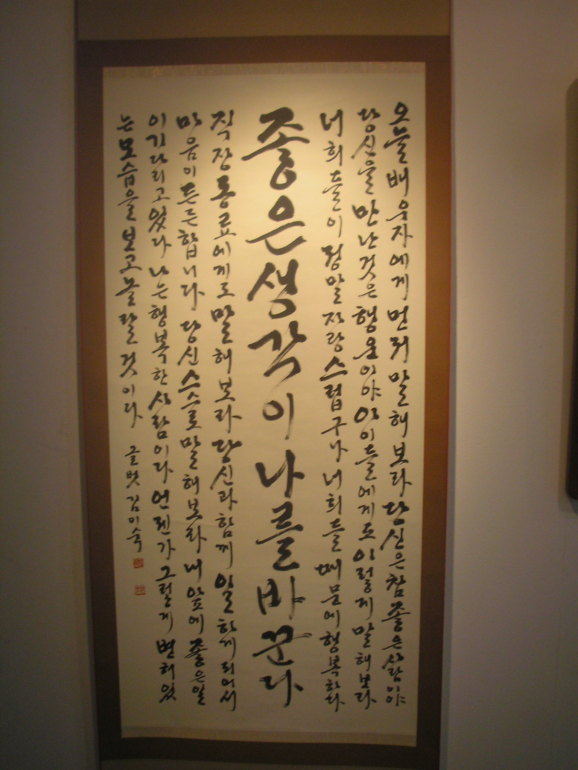 오늘 배우자에게 먼저 말해보라 당신은 참 좋은 사람이야
당신을 만난것은 행운이야 아이들에게도 이렇게 말해보라
너희들이 정말 자랑스럽구나 너희들 때문에 행복하다
좋은 생각이 나를 바꾼다
직장동료에게도 말해보라 당신과 함께 일하게 되어서
마음이 든든합니다 당신 스스로 말해보라 내 앞에 좋은일
이 기다리고 있다 나는 행복한 사람이다 언젠가 그렇게 변해있
는 모습을 보고 놀랄 것이다 글벗 김이숙